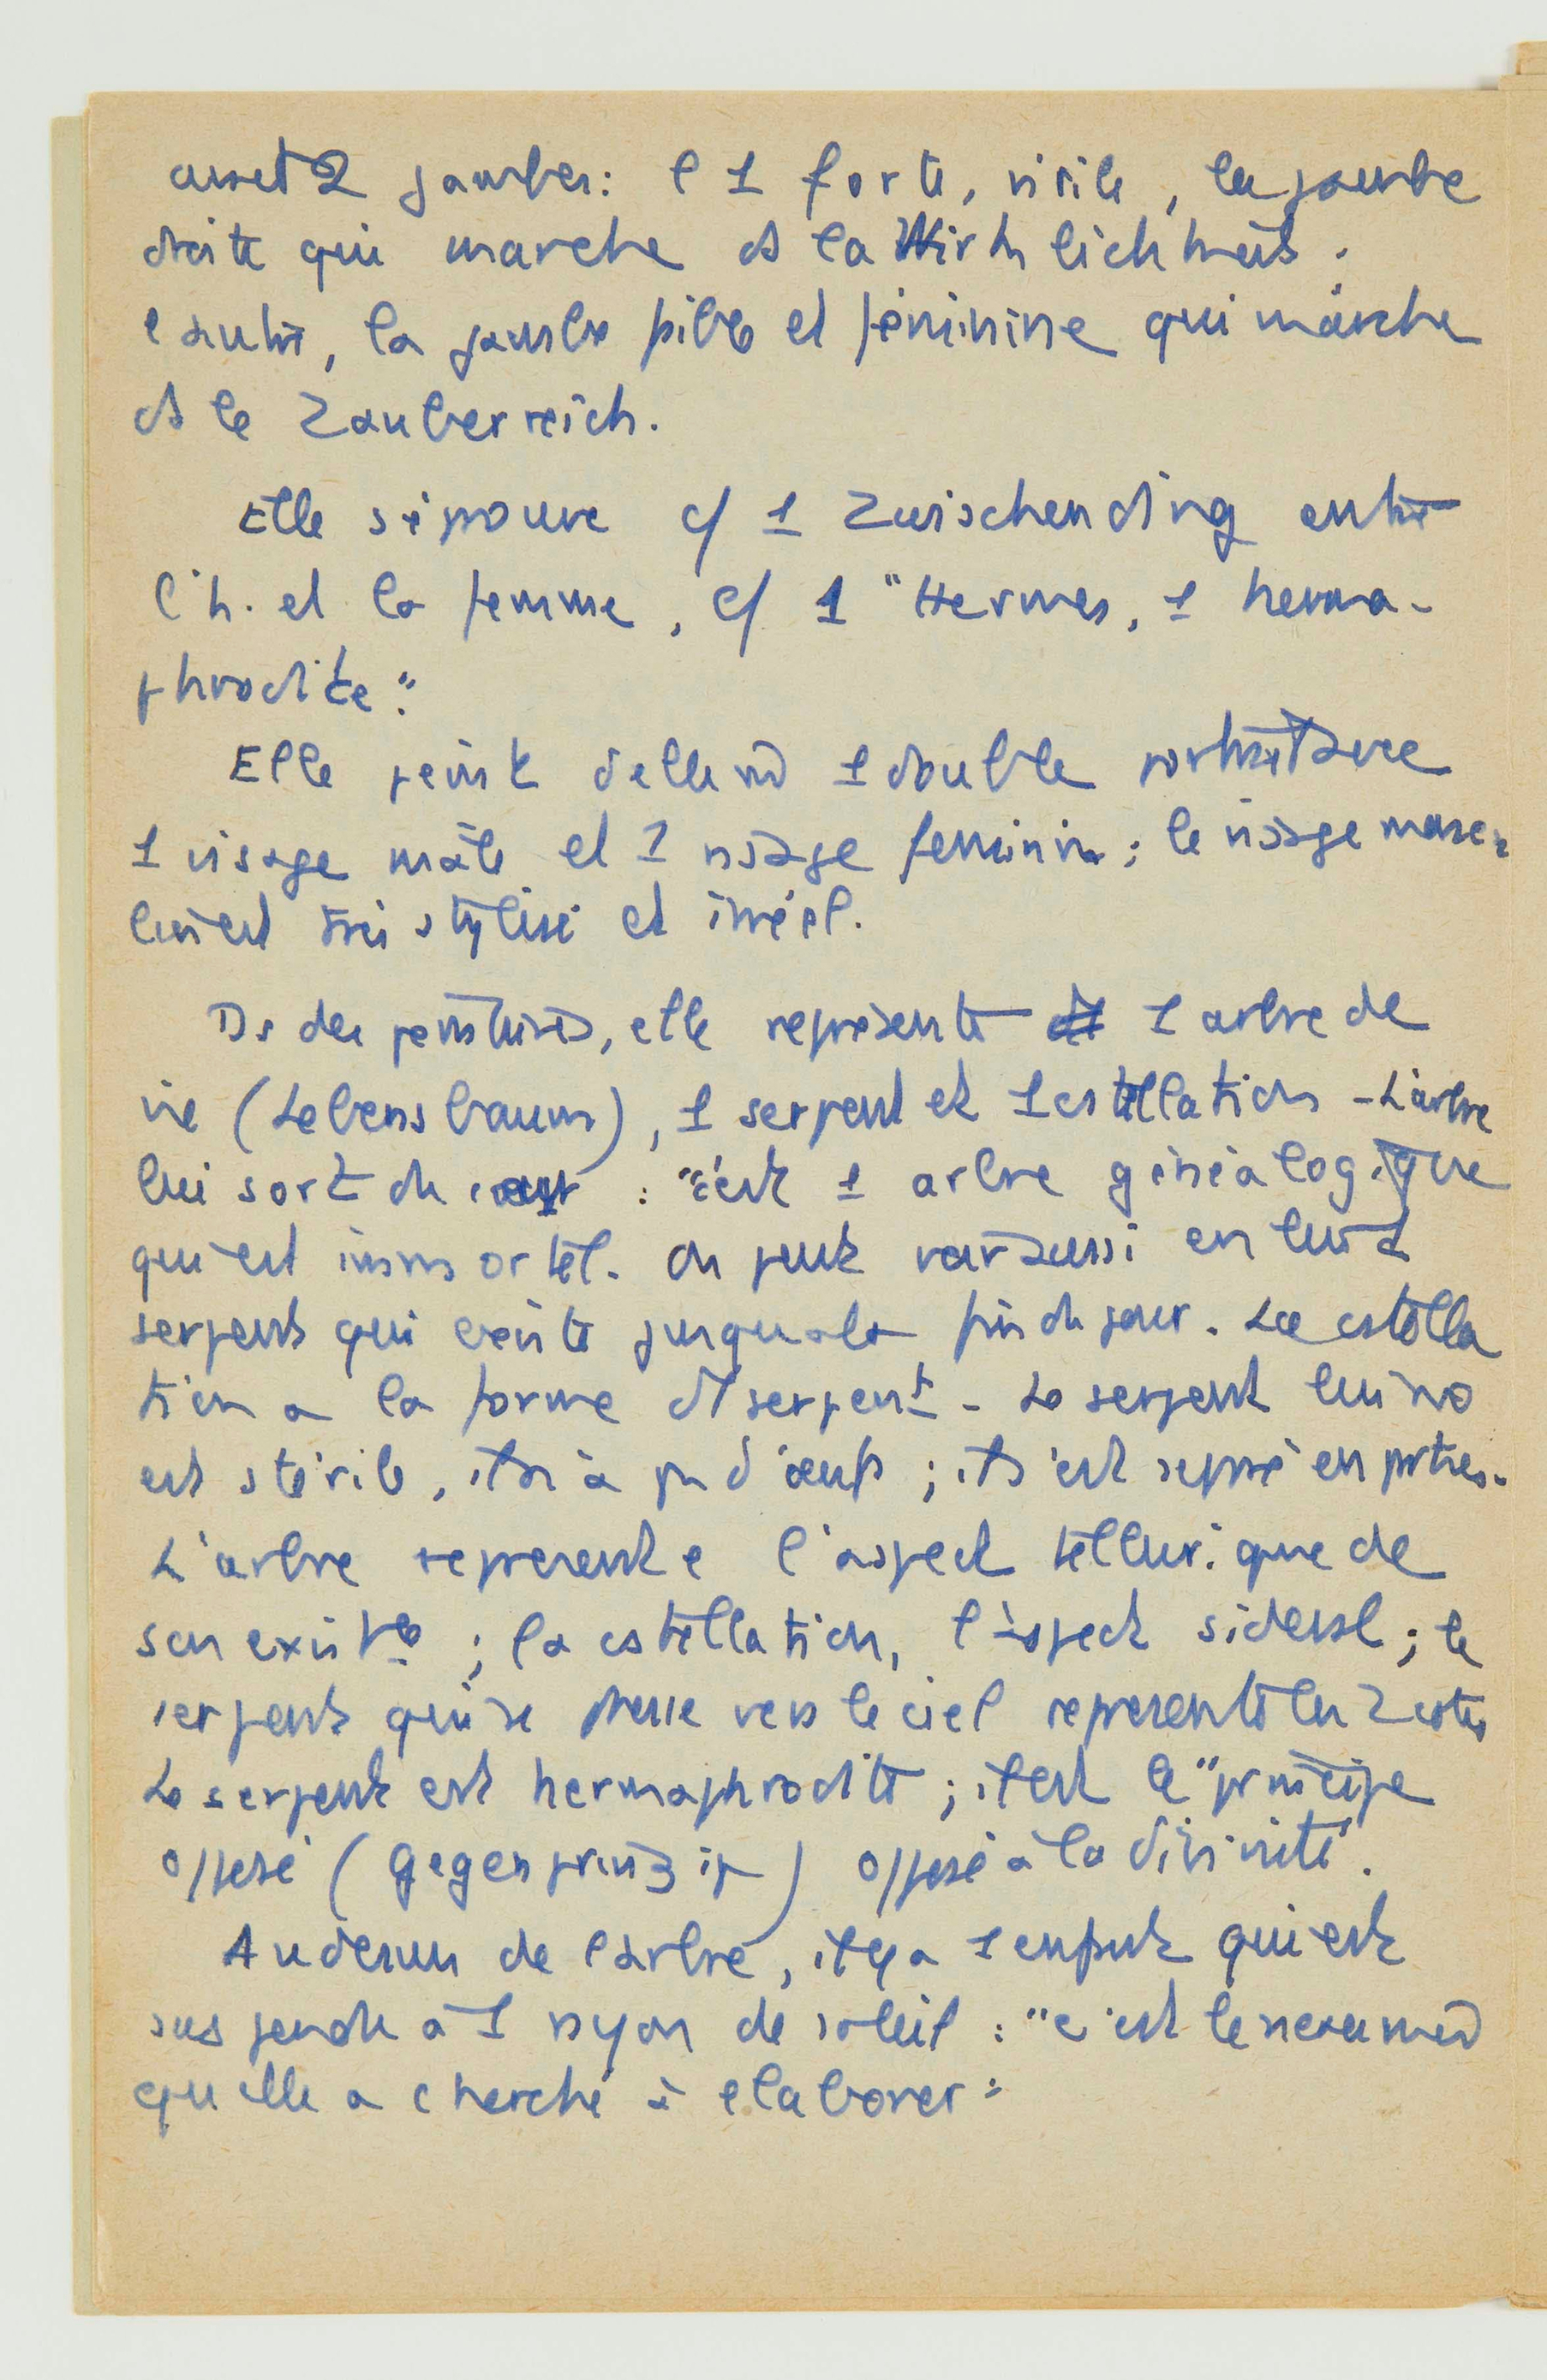 2 jambes : l'1 forte, virile, la jambe
droite qui marche ds la Wirklichkeit ;
l'autre, la jambe faible et féminine qui marche
ds le Zauberreich.
Elle s'éprouve c/ 1 Zwischending entre
l'h. et la femme, c/ 1 "Hermes, 1 herma-
phrodite".
Elle peint d'elle 1 double portrait avec
1 visage mâle et 1 visage feminin ; le visage mascu-
lin est très stylisé et irréel.
Ds des peintures, elle représente 1 arbre de
vie (Lebensbaum), 1 serpent et 1 cstellation - L'arbre
lui sort du coeur : "c'est 1 arbre généalogique
qui est immortel. On peut voir aussi en lui 1
serpent qui existe jusqu'à la fin du jour. La cstella
tion a la forme d'1 serpent - Le serpent lui
est stérile, il n'a pas d'oeufs ; il s'est
L'arbre represente l'aspect tellurique de
son existce ; la cstellation, l'aspect sideral ; le
serpent qui se dresse vers le ciel represente les 2 cotés
Le serpent est hermaphrodite ; il est le "principe
opposé (Gegenprinzip) opposé à la divinité.
Au dessus de l'arbre, il y a 1 enfant qui est
suspendu à 1 rayon de soleil : "c'est le nouveau
qu'elle a cherché à elaborer"